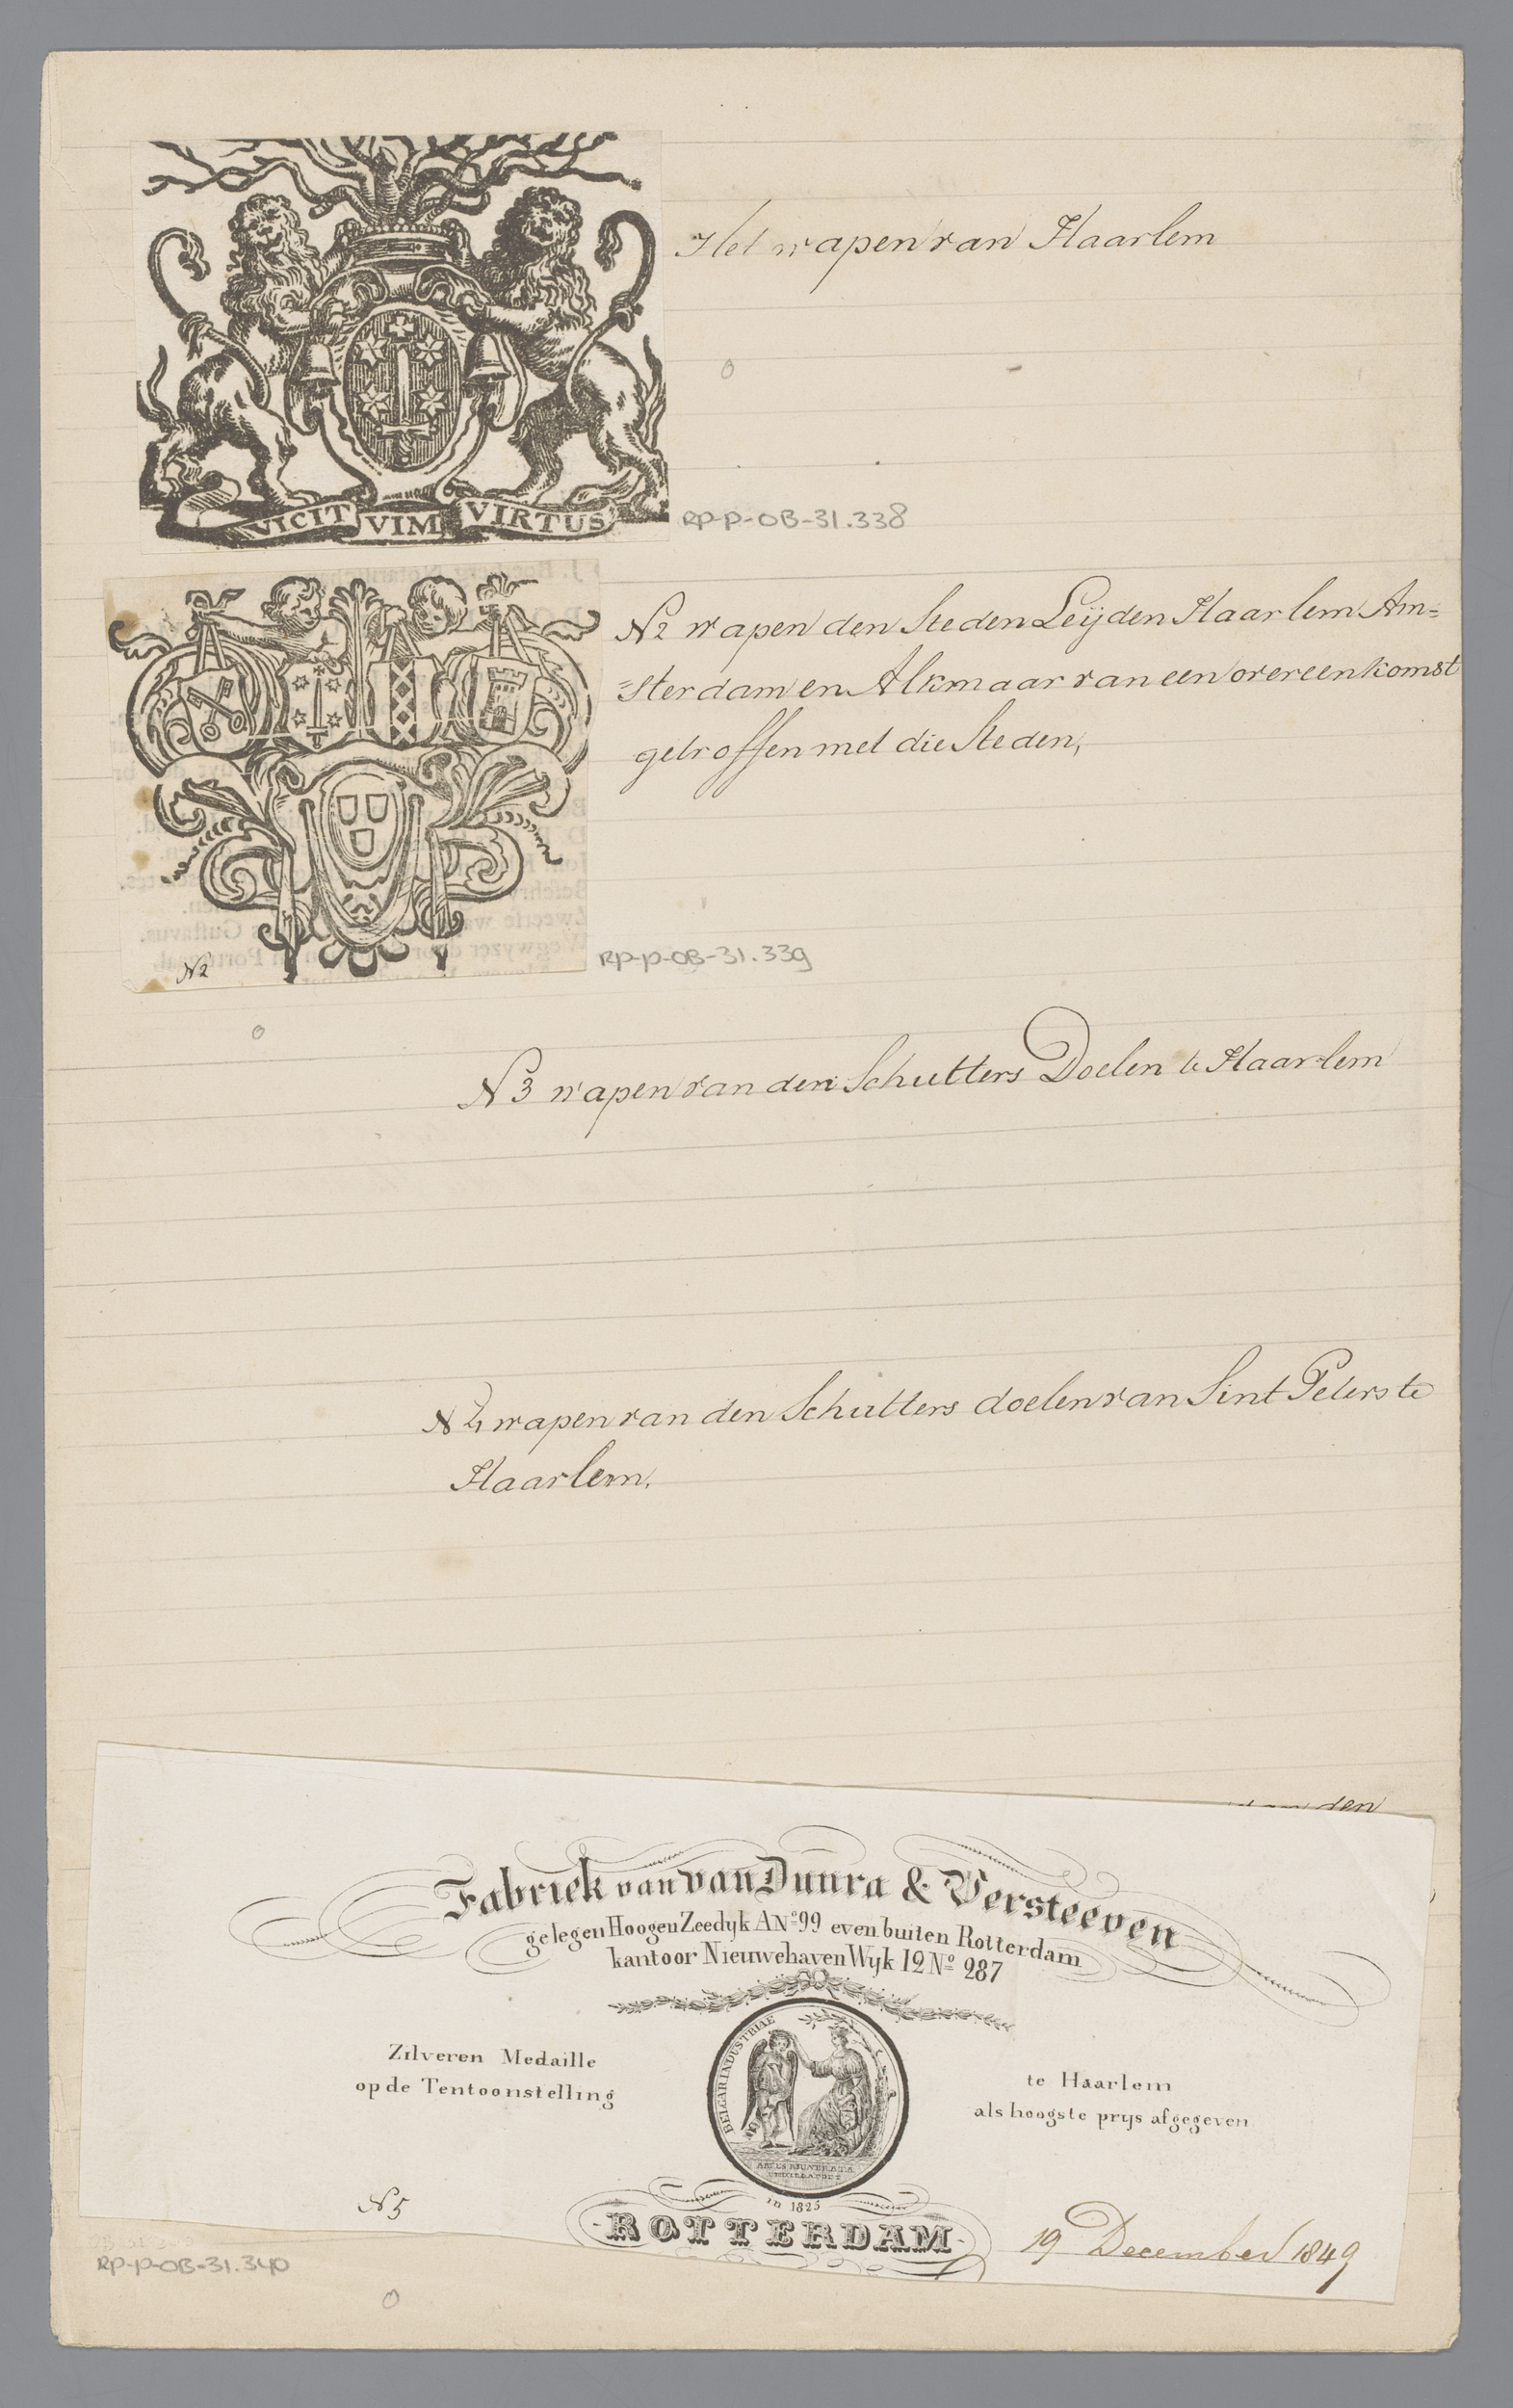 Het wapen van Haarlem
VICIT VIM VIRTUS
RP-P-OB-31.338
N2 wapen den Steden Leijden Haarlem Am=
=sterdam en Alkmaar van een overeenkomst
getroffen met die Steden,
N2
RP-P-OB-31.339
N3 wapen van den Schutters Doelen te Haarlem
N4 wapen van den Schutters doelen van Sint Peters te
Haarlem.
den
Fabriek van van Duura & Versteeven
gelegen Hoogen Zeedyk A No 99 even buiten Rotterdam
kantoor Nieuwehaven Wyk 12 No 287
Zilveren Medaille
op de Tentoonstelling
BELGAR INDUSTRIAE
te Haarlem
als hoogste prys afgegeven
in 1825
N5
ROTTERDAM
19 December 1849
RP-P-OB-31.340